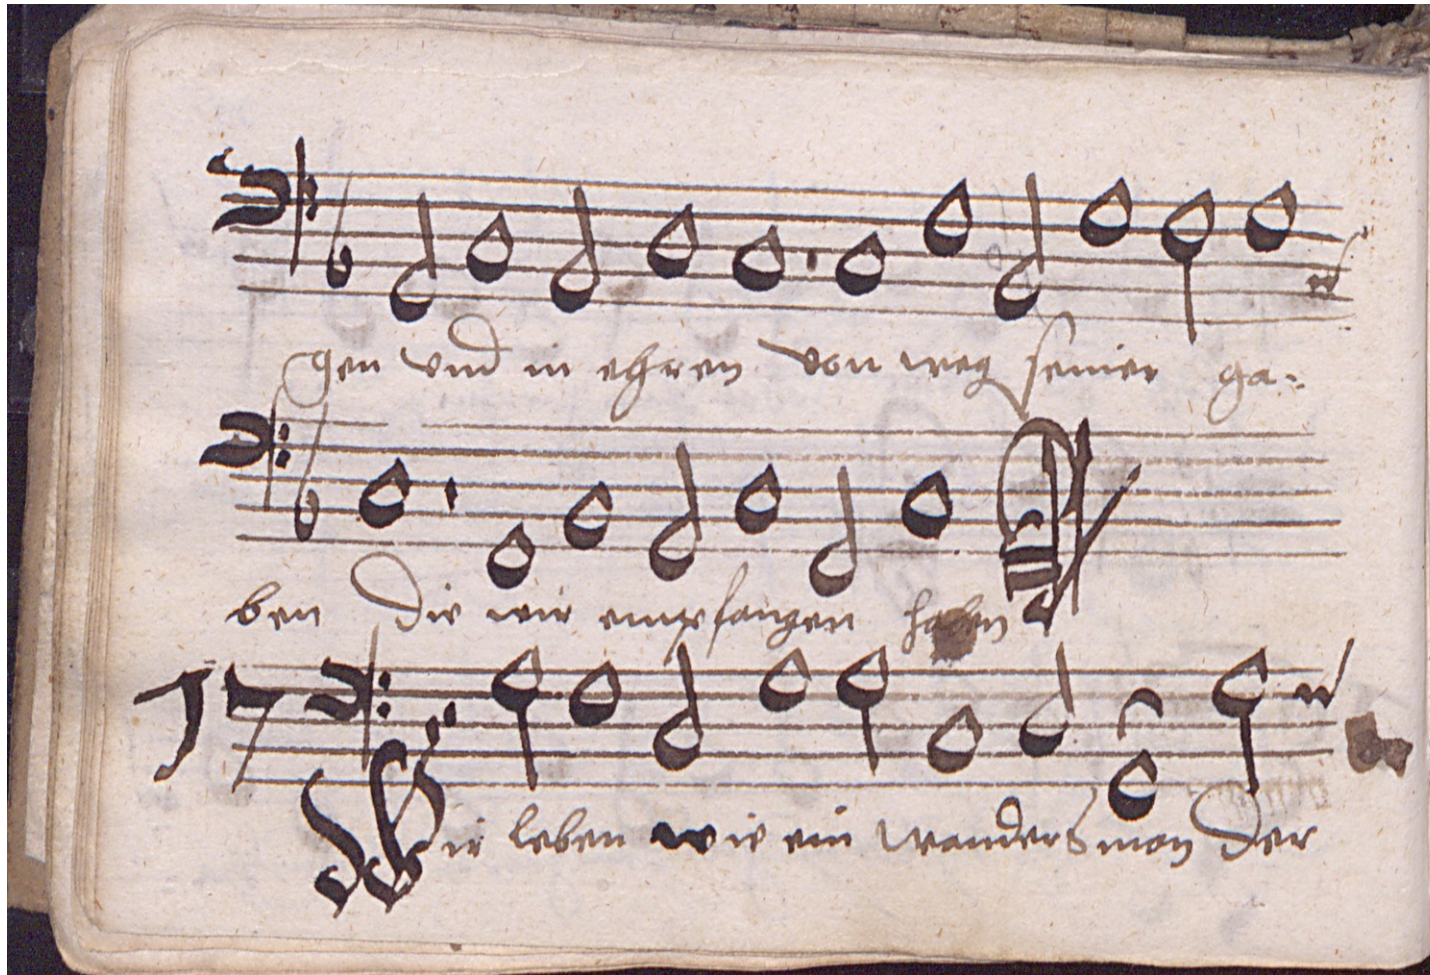 gen vnd in ehren von weg seiner ga-
ben die wir empfangen haben
17
Wir leben wie ein wandersman der